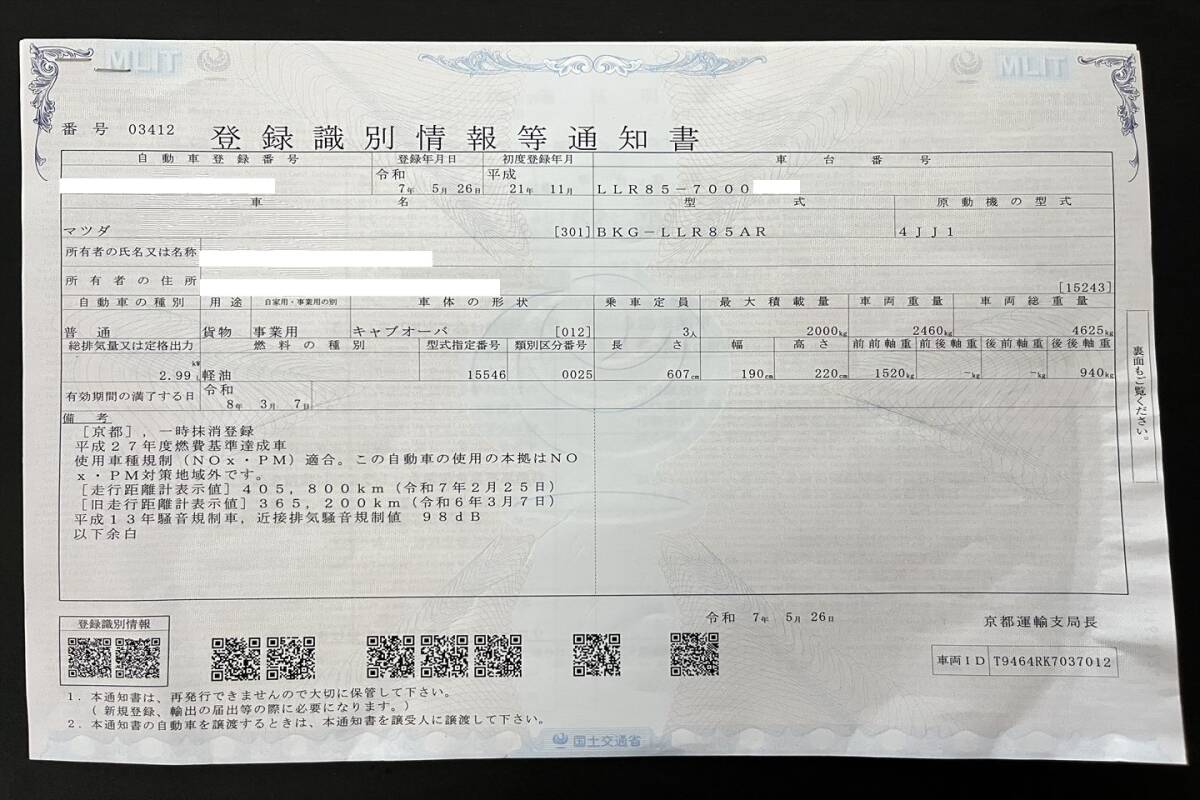 MLIT
MLIT
番号 03412
登録識別情報等通知書
自動車登録番号 登録年月日 初度登録年月 車台番号
令和 7年 5月 26日 平成 21年 11月 LLR85-7000
車名 型式 原動機の型式
マツダ [301] BKG-LLR85AR 4JJ1
所有者の氏名又は名称
所有者の住所 [15243]
自動車の種別 用途 自家用・事業用の別 車体の形状 乗車定員 最大積載量 車両重量 車両総重量
普通 貨物 事業用 キャブオーバ [012] 3人 2000kg 2460kg 4625kg
総排気量又は定格出力 燃料の種別 型式指定番号 類別区分番号 長さ 幅 高さ 前前軸重 前後軸重 後前軸重 後後軸重
kW
2.99 L 軽油 15546 0025 607cm 190cm 220cm 1520kg -kg -kg 940kg
有効期間の満了する日 令和 8年 3月 7日
備考
[京都],一時抹消登録
平成27年度燃費基準達成車
使用車種規制(NOx・PM)適合。この自動車の使用の本拠はNO
x・PM対策地域外です。
[走行距離計表示値]405,800km(令和7年2月25日)
[旧走行距離計表示値]365,200km(令和6年3月7日)
平成13年騒音規制車,近接排気騒音規制値 98dB
以下余白
裏面もご覧ください。
登録識別情報
令和 7年 5月 26日 京都運輸支局長
車両ID T9464RK7037012
1.本通知書は、再発行できませんので大切に保管して下さい。
(新規登録、輸出の届出等の際に必要になります。)
2.本通知書の自動車を譲渡するときは、本通知書を譲受人に譲渡して下さい。
国土交通省